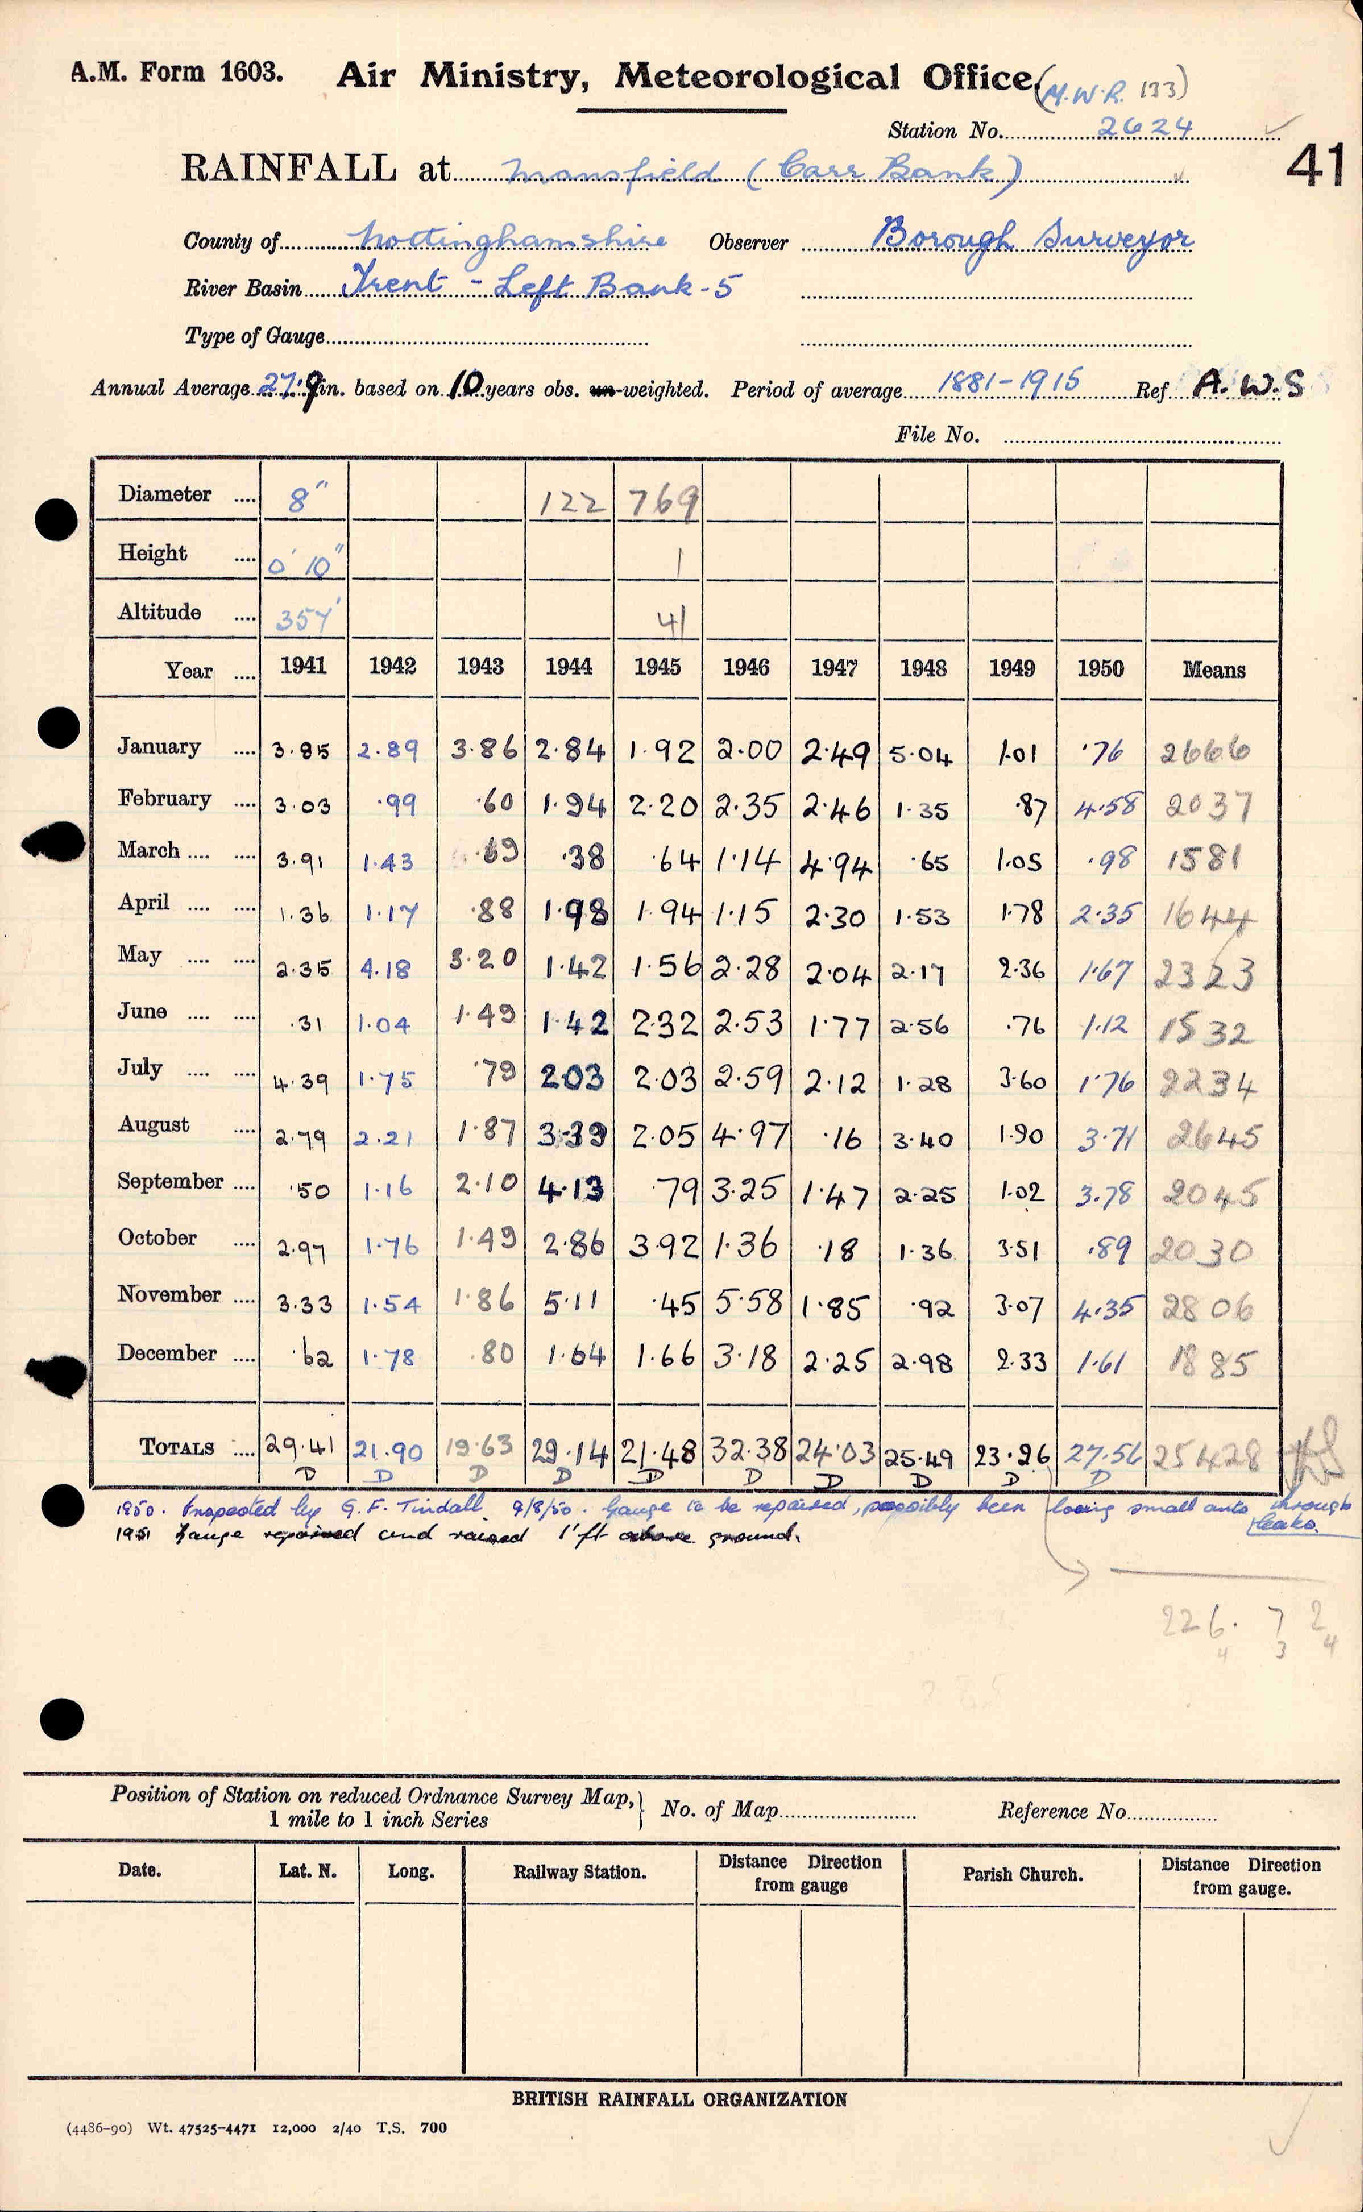 A.M. Form 1603. Air Ministry, Meteorological Office. (M.W.R. 133)
Station No. 2624
41
RAINFALL at Mansfield (Carr Bank)
County of Nottinghamshire Observer Borough Surveyor
River Basin Trent - Left Bank - 5
Type of Gauge
Annual Average 27.9 in. based on 10 years obs. un-weighted. Period of average 1881-1915 Ref A.W.S
File No.
Diameter .... 8" 122 769
Height .... 0' 10" 1
Altitude .... 357' 41
Year .... 1941 1942 1943 1944 1945 1946 1947 1948 1949 1950 Means
January .... 3.85 2.89 3.86 2.84 1.92 2.00 2.49 5.04 1.01 .76 2666
February .... 3.03 .99 .60 1.94 2.20 2.35 2.46 1.35 .87 4.58 2037
March .... .... 3.91 1.43 .69 .38 .64 1.14 4.94 .65 1.05 .98 1581
April .... .... 1.36 1.17 .88 1.98 1.94 1.15 2.30 1.53 1.78 2.35 1644
May .... .... 2.35 4.18 3.20 1.42 1.56 2.28 2.04 2.17 2.36 1.67 2323
June .... .... .31 1.04 1.49 1.42 2.32 2.53 1.77 2.56 .76 1.12 1532
July .... .... 4.39 1.75 .79 2.03 2.03 2.59 2.12 1.28 3.60 1.76 2234
August .... 2.79 2.21 1.87 3.39 2.05 4.97 .16 3.40 1.90 3.71 2645
September .... .50 1.16 2.10 4.13 .79 3.25 1.47 2.25 1.02 3.78 2045
October .... 2.97 1.76 1.49 2.86 3.92 1.36 .18 1.36 3.51 .89 2030
November .... 3.33 1.54 1.86 5.11 .45 5.58 1.85 .92 3.07 4.35 2806
December .... .62 1.78 .80 1.64 1.66 3.18 2.25 2.98 2.33 1.61 1885
TOTALS .... 29.41 21.90 19.63 29.14 21.48 32.38 24.03 25.49 23.26 27.56 25428
D D D D D D D D D D
1950. Inspected by G. F. Tindall. 9/8/50. Gauge to be repaired, possibly been losing small amts through leaks.
1951 Gauge repaired and raised 1'ft above ground.
226. 7 2
4 3 4
Position of Station on reduced Ordnance Survey Map, 1 mile to 1 inch Series } No. of Map Reference No.
Date. Lat. N. Long. Railway Station. Distance Direction from gauge Parish Church. Distance Direction from gauge.
BRITISH RAINFALL ORGANIZATION
(4486-90) Wt. 47525-4471 12,000 2/40 T.S. 700